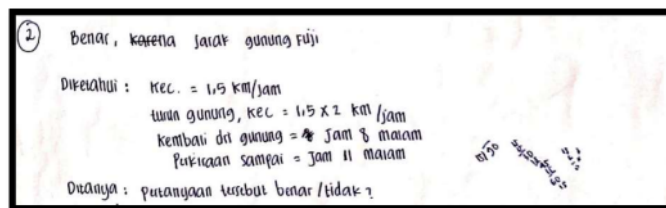 2 Benar, karena jarak gunung Fuji
Diketahui : Kec. = 1,5 km/jam
turun gunung, kec = 1,5 x 2 km/jam
Kembali dri gunung = jam 8 malam
Perkiraan sampai = Jam 11 malam
Ditanya : pertanyaan tersebut benar/tidak?